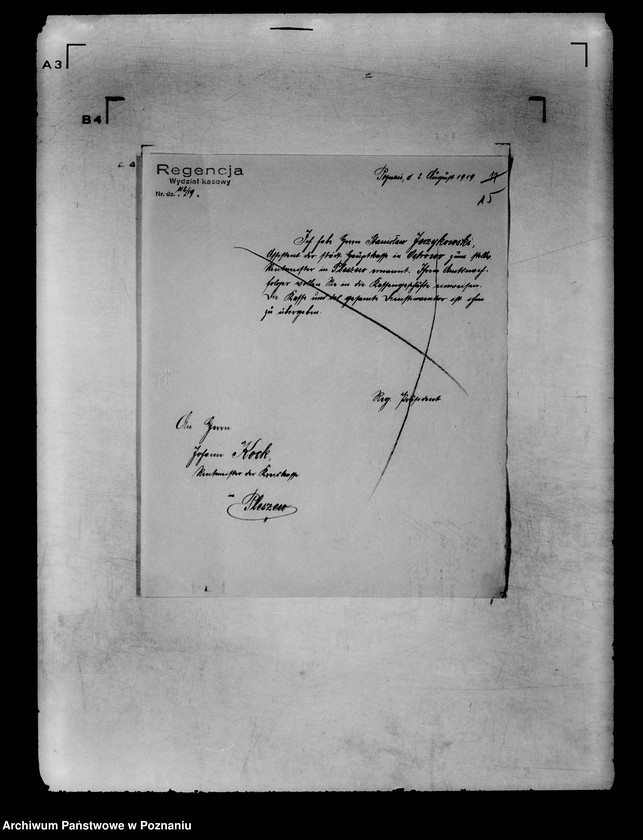 A3
B4
Regencja
Wydział kasowy
Nr. dz. 112/19.
Poznań, d. 2 August 1919
15
Ich habe Herrn Stanisław Jerzykowski,
Assistent der städt. Hauptkasse in Ostrowo zum stellv.
Rentmeister in Pleszew ernannt. Ihrem Amtsnach-
folger wollen Sie in die Kassengeschäfte einweisen.
Die Kasse und das gesamte Dienstinventar ist ihm
zu übergeben.
Reg. Präsident
An Herrn
Johann Kock,
Rentmeister der Kreiskasse
in Pleszew
Archiwum Państwowe w Poznaniu